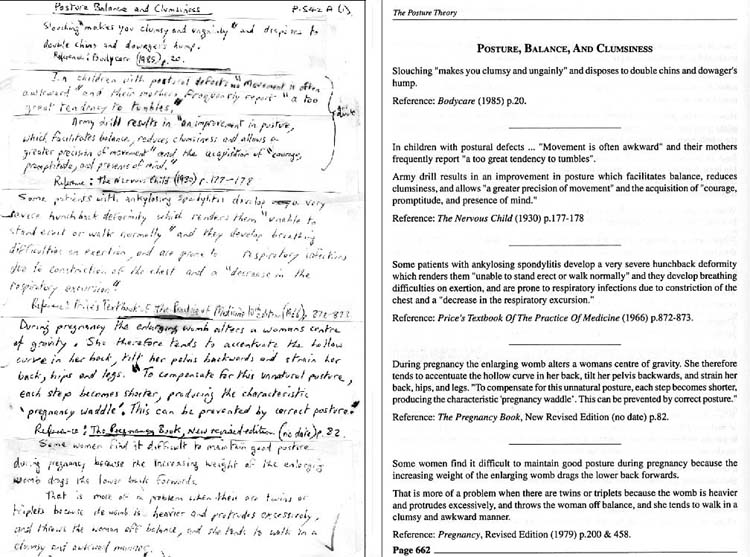 Posture Balance and Clumsiness
P.542 A (1).
Slouching "makes you clumsy and ungainly" and disposes to
double chins and dowager's hump.
Reference: Bodycare (1985) p.20.
In children with postural defects "Movement is often
awkward" and their mothers frequently report "a too
great tendency to tumbles."
Army drill results in "an improvement in posture,
which facilitates balance, reduces clumsiness and allows a
greater precision of movement" and the acquisition of "courage,
promptitude, and presence of mind."
Reference: The Nervous Child (1930) p.177-178
Some patients with ankylosing spondylitis develop a very
severe hunchback deformity which renders them "unable to
stand erect or walk normally" and they develop breathing
difficulties on exertion, and are prone to respiratory infections
due to constriction of the chest and a "decrease in the
respiratory excursion."
Reference: Price's Textbook of The Practice of Medicine 10th Edition (1966), 872-873
During pregnancy the enlarging womb alters a womans centre
of gravity. She therefore tends to accentuate the hollow
curve in her back, tilt her pelvis backwards and strain her
back, hips and legs. "To compensate for this unnatural posture,
each step becomes shorter, producing the characteristic
'pregnancy waddle'. This can be prevented by correct posture."
Reference: The Pregnancy Book, New revised edition (no date) p.82.
Some women find it difficult to maintain good posture
during pregnancy because the increasing weight of the enlarging
womb drags the lower back forwards.
That is more of a problem when there are twins or
triplets because the womb is heavier and protrudes excessively,
and throws the woman off balance, and she tends to walk in a
clumsy and awkward manner.
The Posture Theory
POSTURE, BALANCE, AND CLUMSINESS
Slouching "makes you clumsy and ungainly" and disposes to double chins and dowager's
hump.
Reference: Bodycare (1985) p.20.
In children with postural defects ... "Movement is often awkward" and their mothers
frequently report "a too great tendency to tumbles".
Army drill results in an improvement in posture which facilitates balance, reduces
clumsiness, and allows "a greater precision of movement" and the acquisition of "courage,
promptitude, and presence of mind."
Reference: The Nervous Child (1930) p.177-178
Some patients with ankylosing spondylitis develop a very severe hunchback deformity
which renders them "unable to stand erect or walk normally" and they develop breathing
difficulties on exertion, and are prone to respiratory infections due to constriction of the
chest and a "decrease in the respiratory excursion."
Reference: Price's Textbook Of The Practice Of Medicine (1966) p.872-873.
During pregnancy the enlarging womb alters a womans centre of gravity. She therefore
tends to accentuate the hollow curve in her back, tilt her pelvis backwards, and strain her
back, hips, and legs. "To compensate for this unnatural posture, each step becomes shorter,
producing the characteristic 'pregnancy waddle'. This can be prevented by correct posture."
Reference: The Pregnancy Book, New Revised Edition (no date) p.82.
Some women find it difficult to maintain good posture during pregnancy because the
increasing weight of the enlarging womb drags the lower back forwards.
That is more of a problem when there are twins or triplets because the womb is heavier
and protrudes excessively, and throws the woman off balance, and she tends to walk in a
clumsy and awkward manner.
Reference: Pregnancy, Revised Edition (1979) p.200 & 458.
Page 662